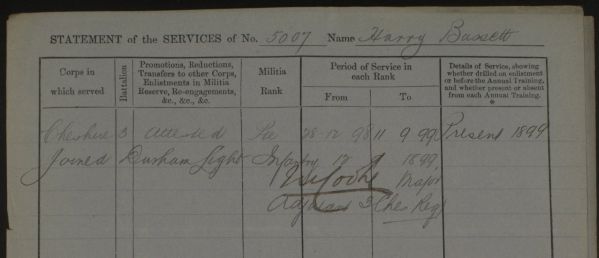 STATEMENT of the SERVICES of No. 5007 Name Harry Bassett
Corps in which served
Battalion
Promotions, Reductions, Transfers to other Corps, Enlistments in Militia Reserve, Re-engagements, &c., &c., &c.
Militia Rank
Period of Service in each Rank
From To
Details of Service, showing whether drilled on enlistment or before the Annual Training, and whether present or absent from each Annual Training.
*
Cheshire 3 Attested Pte 28 12 98 11 9 99 Present 1899
Joined Durham Light Infantry 12 1899
Major
3 Ches Regt